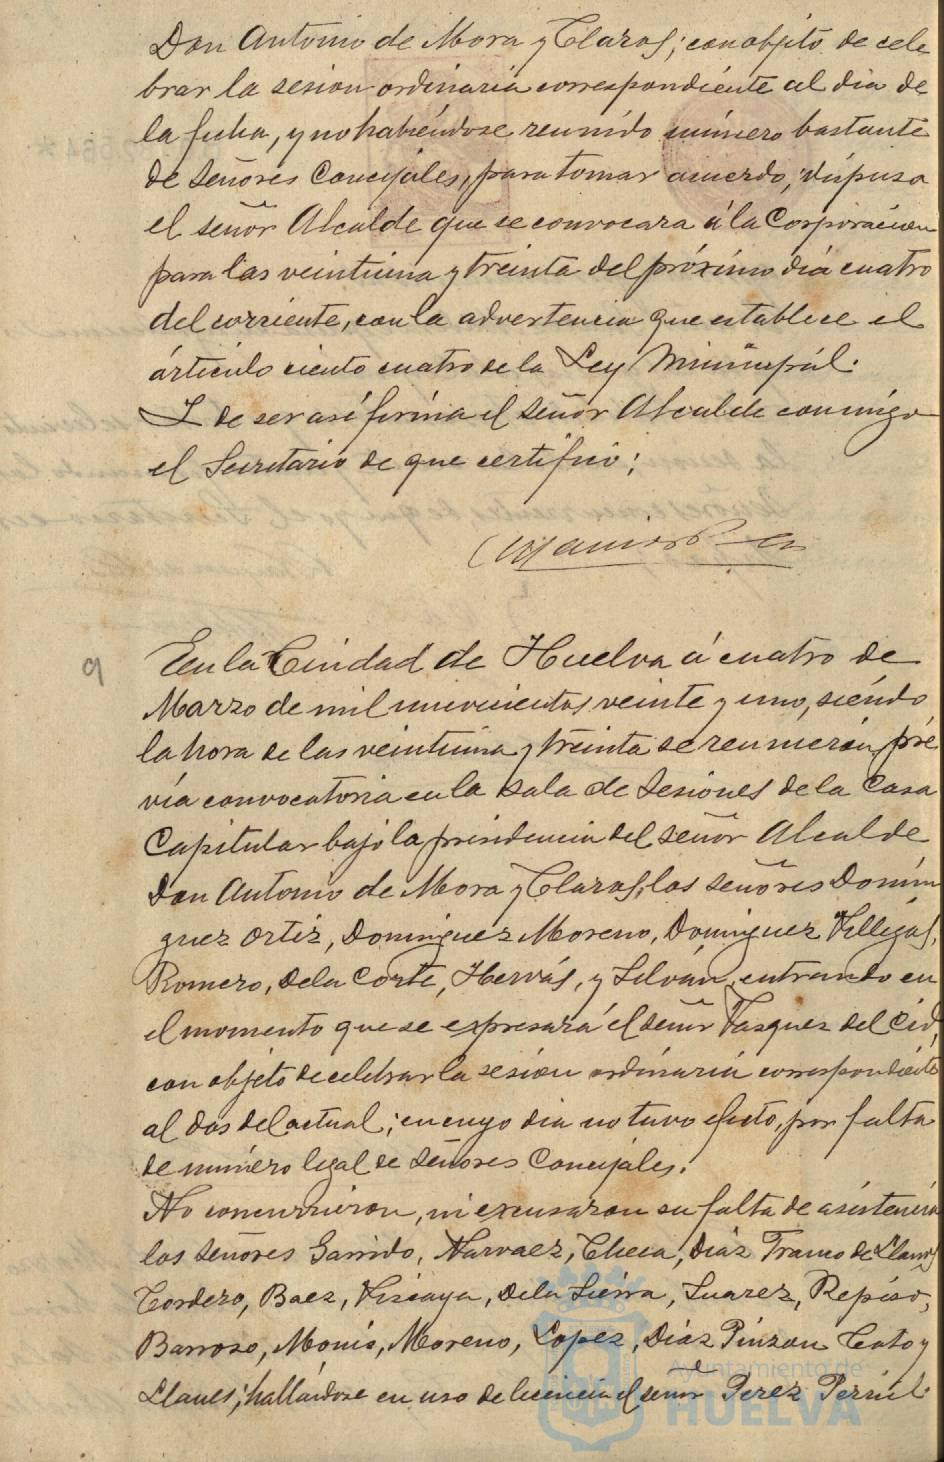 Don Antonio de Mora y Claros; con objeto de cele
brar la sesion ordinaria correspondiente al dia de
la fecha, y no habiéndose reunido número bastante
de Señores Concejales, para tomar acuerdo, dispuso
el señor Alcalde que se convocara á la Corporacion
para las veintiuna y treinta del próximo dia cuatro
del corriente, con la advertencia que establece el
artículo ciento cuatro de la Ley Municipal.
Y de ser así firma el Señor Alcalde conmigo
el Secretario de que certifico:
9 En la Ciudad de Huelva á cuatro de
Marzo de mil novecientos veinte y uno, siendo
la hora de las veintiuna y treinta se reunieron, pré
via convocatoria en la Sala de Sesiones de la Casa
Capitular bajo la presidencia del señor Alcalde
Don Antonio de Mora y Claros, los señores Domin
guez Ortiz, Dominguez Moreno, Dominguez Villegas,
Romero, de la Corte, Hervás, y Silván, entrando en
el momento que se expresará el señor Vasquez del Cid,
con objeto de celebrar la sesion ordinaria correspondiente
al dos del actual; en cuyo dia no tuvo efecto, por falta
de número legal de Señores Concejales.
No concurrieron, ni excusaron su falta de asistencia
los Señores Garrido, Narvaez, Checa, Diaz Franco de Llanos
Cordero, Baez, Vizcaya, de la Sierra, Suarez, Repiso,
Barroso, Monis, Moreno, Lopez, Diaz Pinzon Coto y
Llanes; hallándose en uso de licencia el señor Perez
Ayuntamiento de
HUELVA